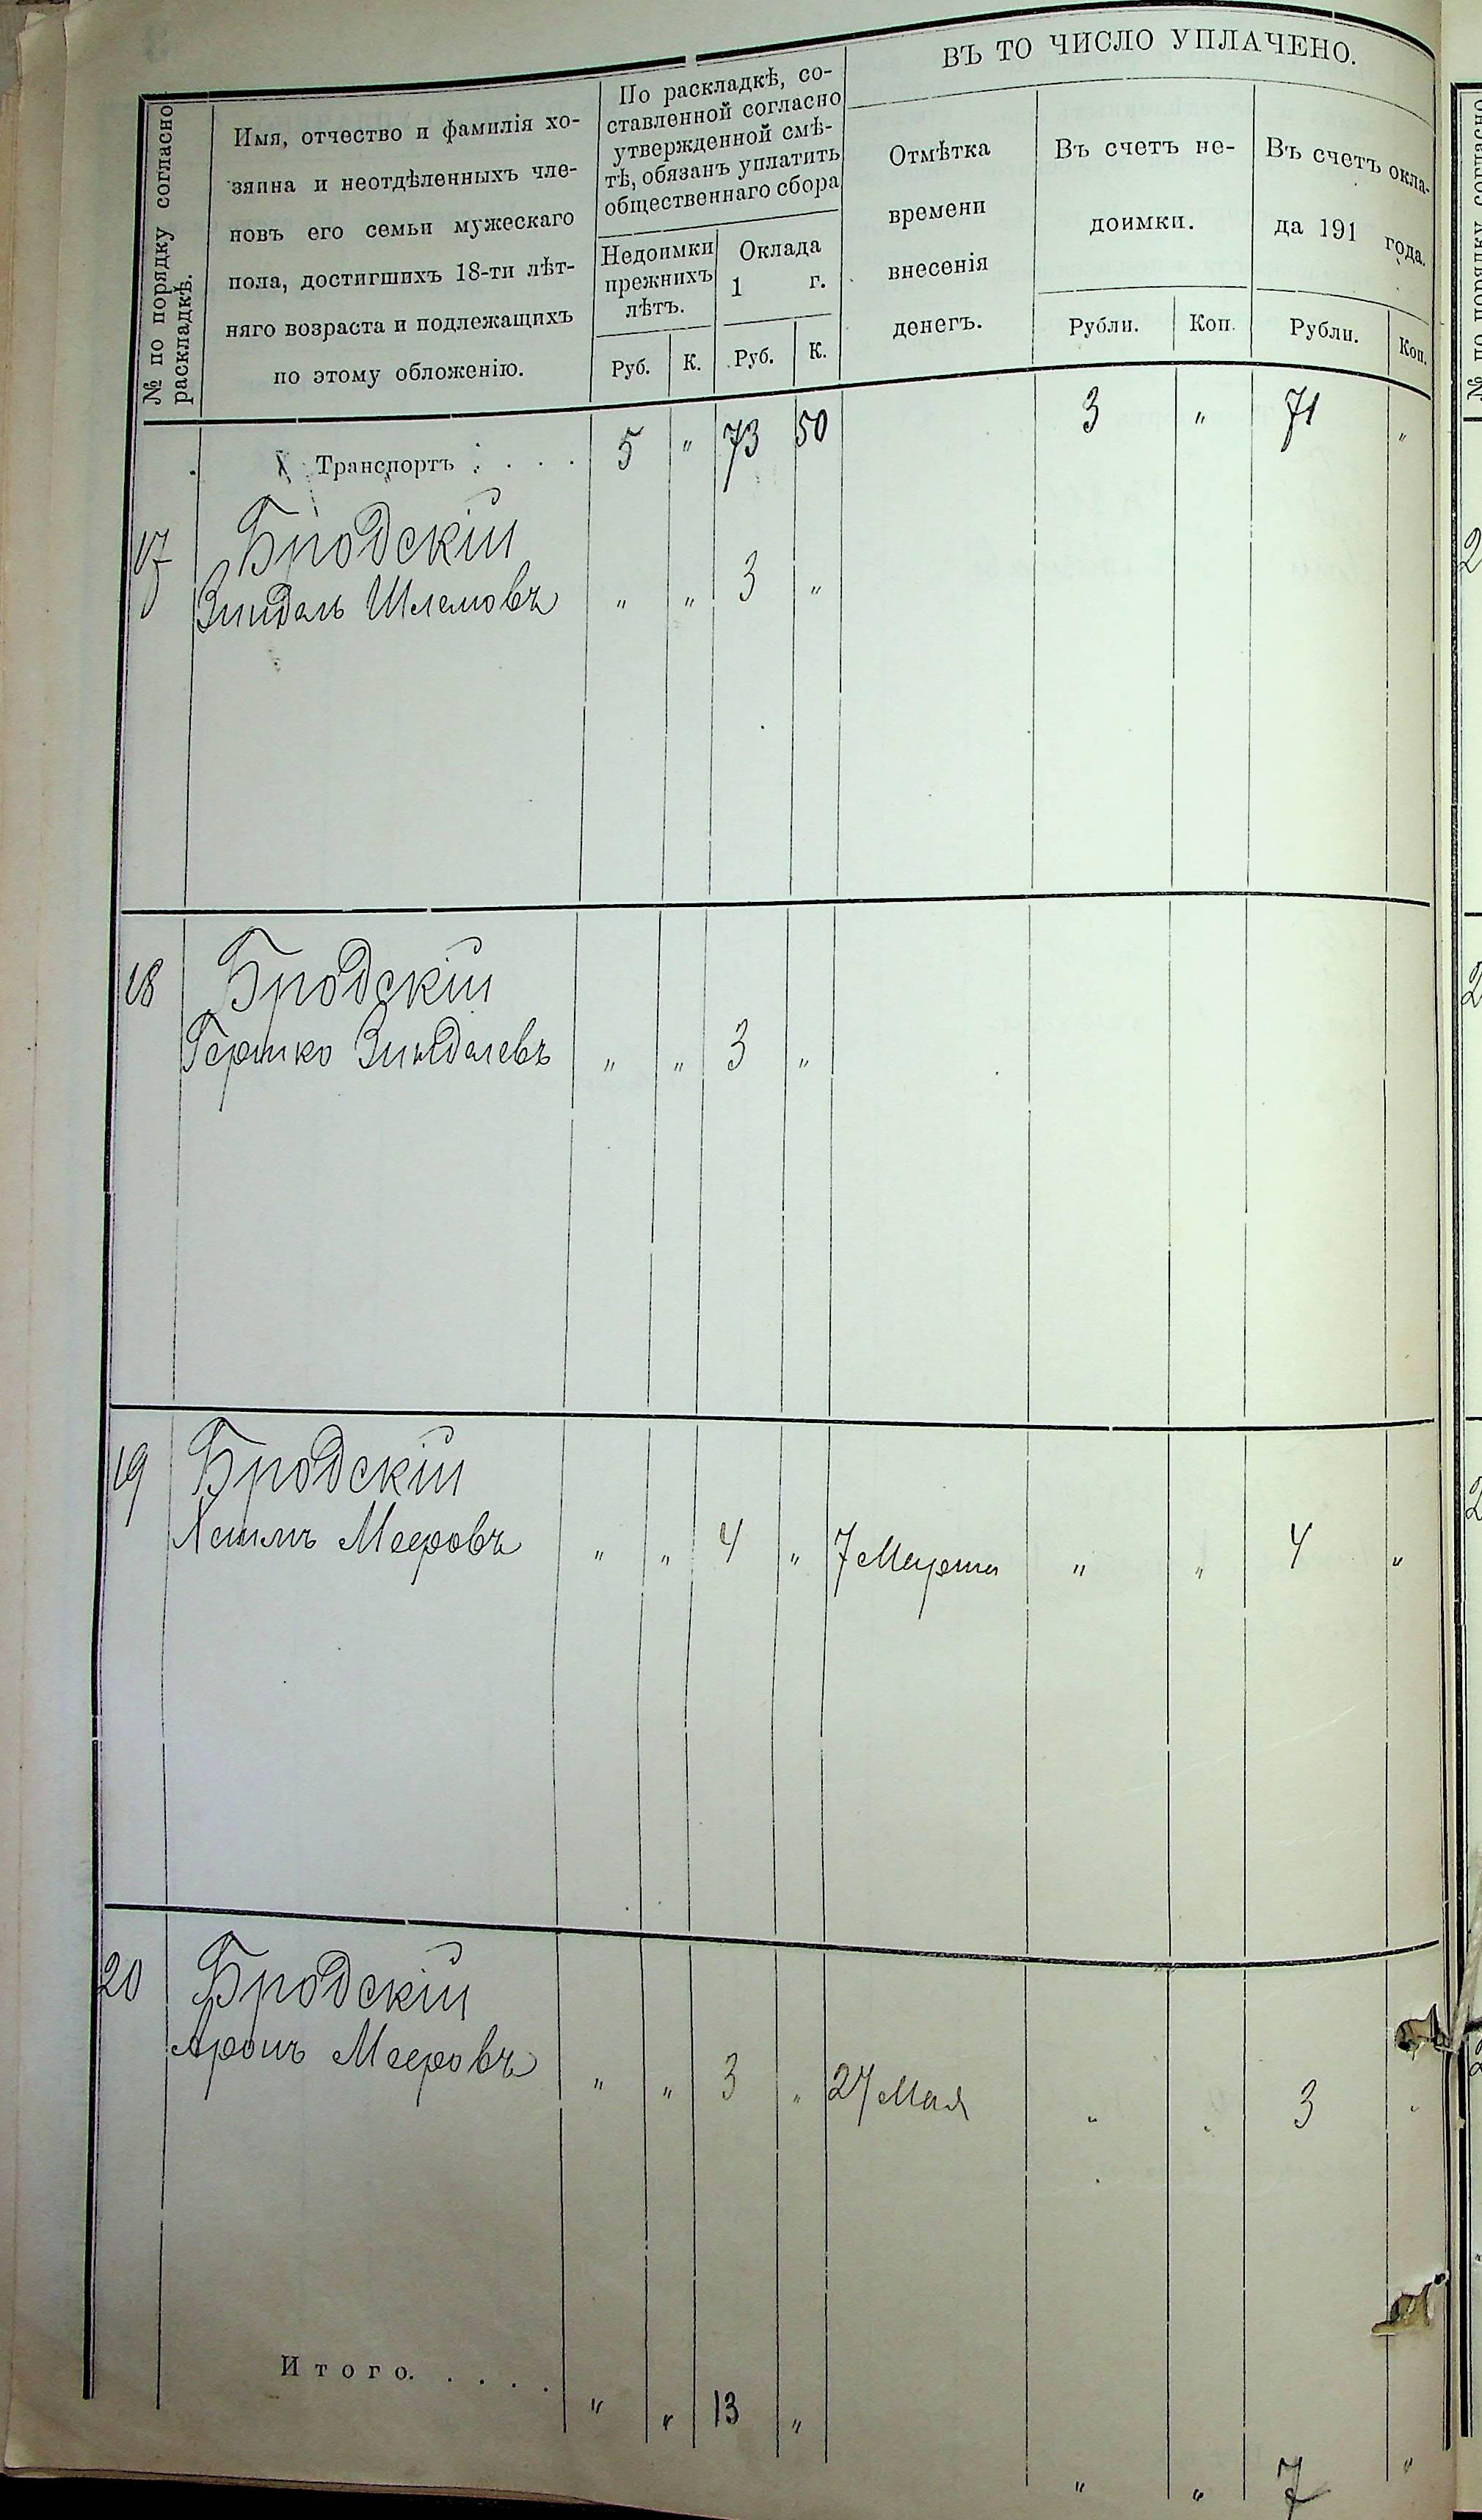 № по порядку согласно
раскладкѣ.
Имя, отчество и фамилія хо-
зяина и неотдѣленныхъ чле-
новъ его семьи мужескаго
пола, достигшихъ 18-ти лѣт-
няго возраста и подлежащихъ
по этому обложенію.
По раскладкѣ, со-
ставленной согласно
утвержденной смѣ-
тѣ, обязанъ уплатить
общественнаго сбора
Недоимки
прежнихъ
лѣтъ.
Оклада
1 г.
Руб. К. Руб. К.
ВЪ ТО ЧИСЛО УПЛАЧЕНО.
Отмѣтка
времени
внесенія
денегъ.
Въ счетъ не-
доимки.
Рубли. Коп.
Въ счетъ окла-
да 191 года.
Рубли. Коп.
Транспортъ . . . . 5 " 73 50 3 " 71 "
17 Бродскій
Зиндель Шлемовъ " " 3 "
18 Бродскій
Гершко Зинделевъ " " 3 "
19 Бродскій
Хаимъ Мееровъ " " 4 " 7 Марта " " 4 "
20 Бродскій
Аронъ Мееровъ " " 3 " 27 Мая " " 3 "
Итого. . . . . " " 13 " " " 7 "